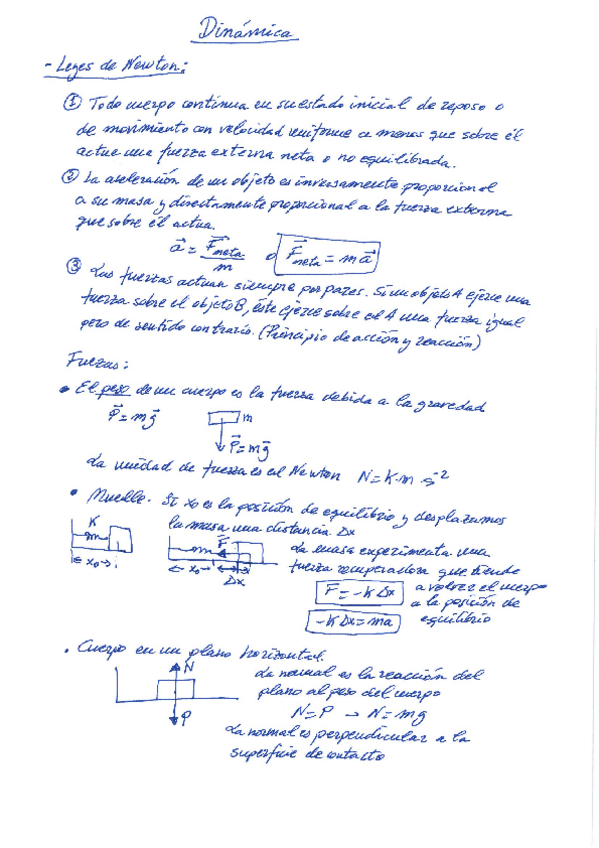 Dinámica
- Leyes de Newton:
① Todo cuerpo continua en su estado inicial de reposo o
de movimiento con velocidad uniforme a menos que sobre él
actue una fuerza externa neta o no equilibrada.
② La aceleración de un objeto es inversamente proporcional
a su masa y directamente proporcional a la fuerza externa
que sobre él actua.
a⃗ = F⃗neta / m o F⃗neta = m a⃗
③ Las fuerzas actuan siempre por pares. Si un objeto A ejerce una
fuerza sobre el objeto B, éste ejerce sobre el A una fuerza igual
pero de sentido contrario. (Principio de acción y reacción)
Fuerzas:
• El peso de un cuerpo es la fuerza debida a la gravedad
P⃗ = m g⃗ m
P⃗ = m g⃗
La unidad de fuerza es el Newton N = K·m·s⁻²
• Muelle. Si x₀ es la posición de equilibrio y desplazamos
la masa una distancia Δx
K F⃗
La masa experimenta una
x₀ x₀ Δx
fuerza recuperadora que tiende
F = -K Δx a volver el cuerpo
a la posición de
-K Δx = ma equilibrio
• Cuerpo en un plano horizontal.
N
La normal es la reacción del
plano al peso del cuerpo
P N = P → N = mg
La normal es perpendicular a la
superficie de contacto